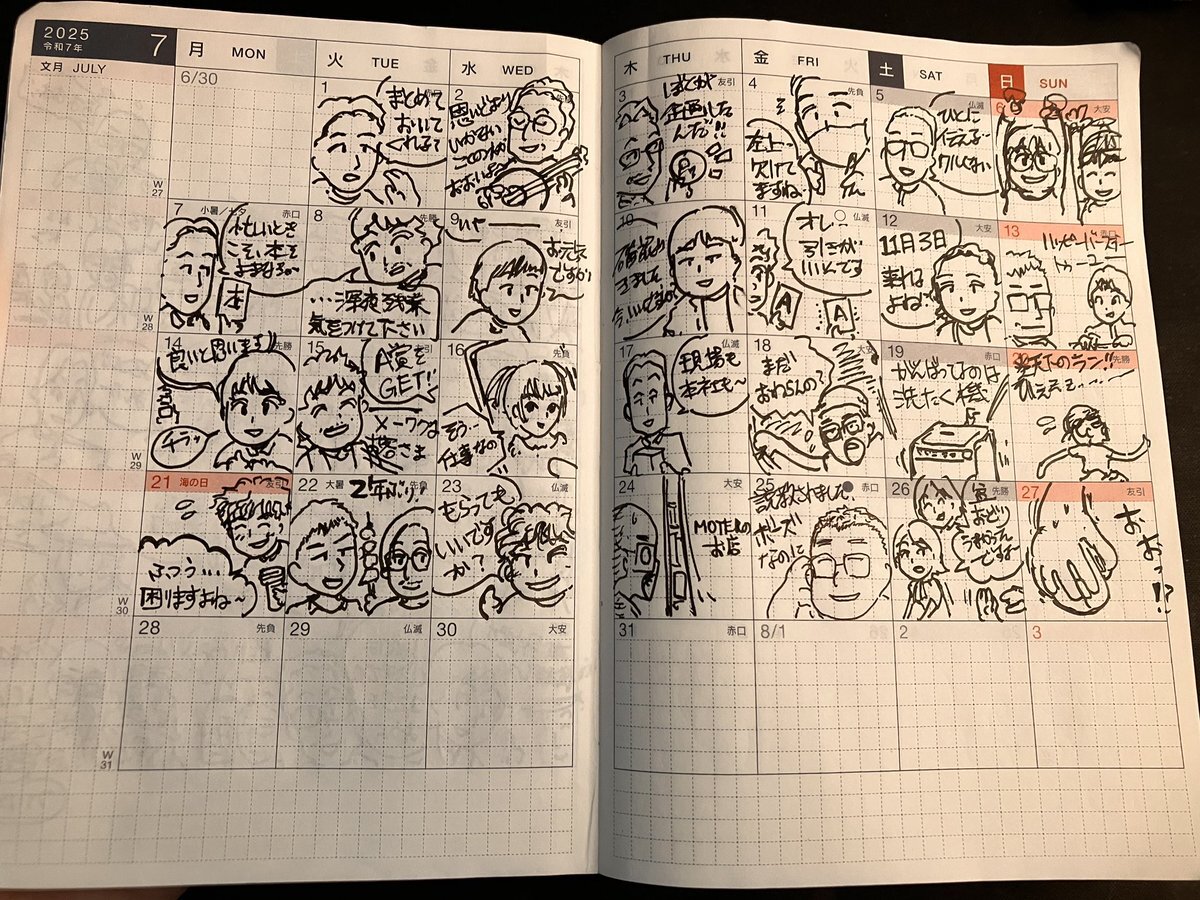 2025
令和7年
7
文月 JULY
月 MON
火 TUE
水 WED
木 THU
金 FRI
土 SAT
日 SUN
6/30
W
27
1
まとめて
おいて
くれ
2
思いどおり
いかない
ことのほうが
おおいよ
3
友引
ぼくが
企画した
んだ!!
4
先負
左上
欠けて
ますね
5
仏滅
ひとに
伝える
6
大安
7
小暑/七夕
赤口
忙しいとき
こそ、本を
よまなる
本
W
28
8
先勝
…深夜残業
気をつけて下さい
9
友引
いや
お元気
ですか?
10
確認
11
仏滅
オレ
引きが
いいんです
A
A
12
大安
11月3日
また
よね
13
赤口
ハッピーバースデー
トゥーユー
14
先勝
良いと思います
チラッ
W
29
15
A賞を
GET!!
メーワクな
お客さま
16
先負
そう…
仕事なの
17
仏滅
現場も
本社も〜
18
大安
まだ
おわらんの?
19
赤口
がんばってるのは
洗たく機
20
先勝
炎天下のラン!!
ひええ
21
海の日
友引
ふつう…
困りますよね〜
W
30
22
大暑
先負
2年ぶり!
23
仏滅
もらっても
いいです
か?
24
大安
MOTERの
お店
25
赤口
説教されました、
ポーズ
なのに
26
先勝
おどり
ですね
27
友引
おおっ!?
28
先負
29
仏滅
30
大安
31
赤口
8/1
2
3
W
31